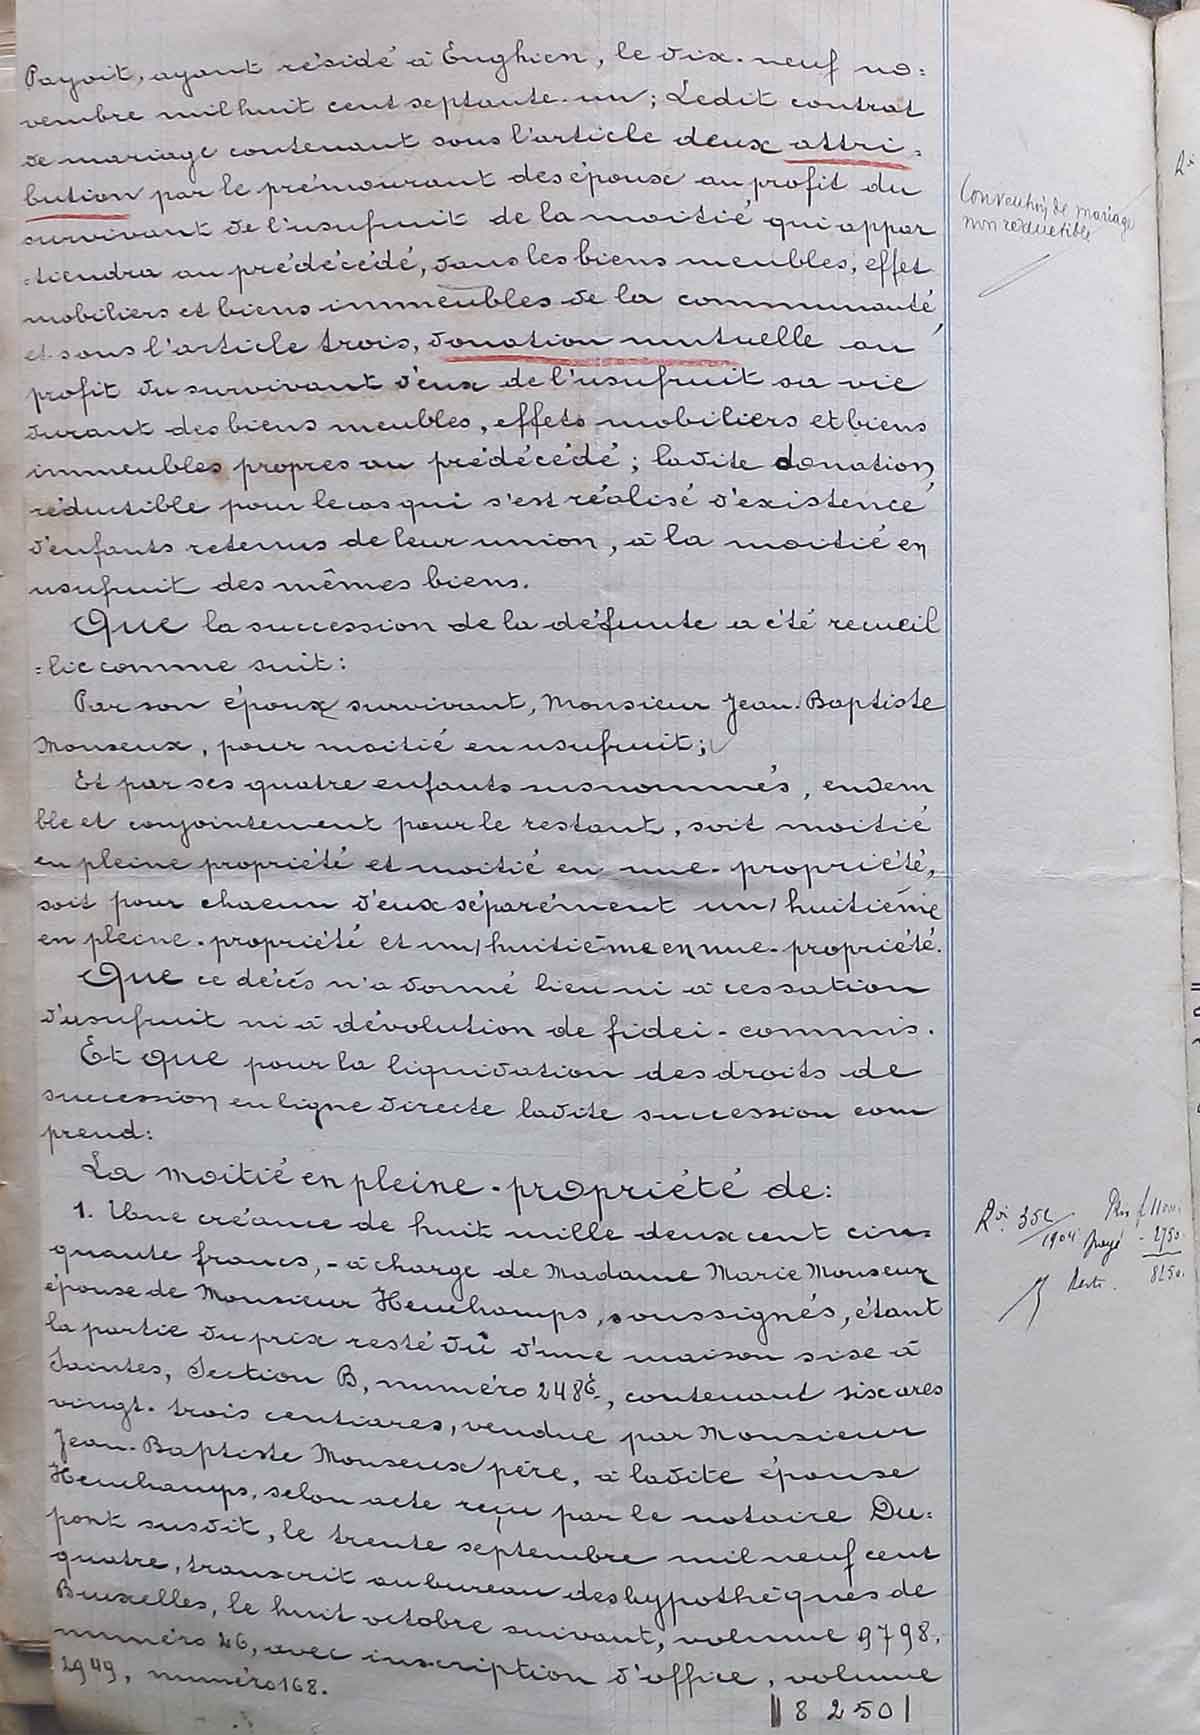 Payoit, ayant résidé à Enghien, le dix-neuf no=
vembre mil huit cent septante-un; Ledit contrat
de mariage contenant sous l'article deux attri=
bution par le prémourant des époux au profit du
survivant de l'usufruit de la moitié qui appar
=tiendra au prédécédé, dans les biens meubles, effet
mobiliers et biens immeubles de la communauté,
et sous l'article trois, donation mutuelle au
profit du survivant d'eux de l'usufruit sa vie
durant des biens meubles, effets mobiliers et biens
immeubles propres au prédécédé; ladite donation
réductible pour le cas qui s'est réalisé d'existence
d'enfants retenus de leur union, à la moitié en
usufruit des mêmes biens.
Que la succession de la défunte a été recueil
=lie comme suit:
Par son époux survivant, Monsieur Jean-Baptiste
Monseux, pour moitié en usufruit;
Et par ses quatre enfants susnommés, ensem
ble et conjointement pour le restant, soit moitié
en pleine propriété et moitié en nue-propriété,
soit pour chacun d'eux séparément un/huitième
en pleine-propriété et un/huitième en nue-propriété.
Que ce décès n'a donné lieu ni à cessation
d'usufruit ni à dévolution de fidei-commis.
Et que pour la liquidation des droits de
succession en ligne directe ladite succession com
prend:
La moitié en pleine-propriété de:
1. Une créance de huit mille deux cent cin=
quante francs,- à charge de Madame Marie Monseux
épouse de Monsieur Heuchamps, soussignés, étant
la partie du prix resté dû d'une maison sise à
Saintes, Section B, numéro 248É, contenant six ares
vingt-trois centiares, vendue par Monsieur
Jean-Baptiste Monseux père, à ladite épouse
Heuchamps, selon acte reçu par le notaire Du=
pont susdit, le trente septembre mil neuf cent
quatre, transcrit au bureau des hypothèques de
Bruxelles, le huit octobre suivant, volume 9798,
numéro 26, avec inscription d'office, volume
2949, numéro 168.
8250
Convention de mariage
non réductible
Roi 352 Prix f 11000.
1904 payé - 2750
Reste. 8250.